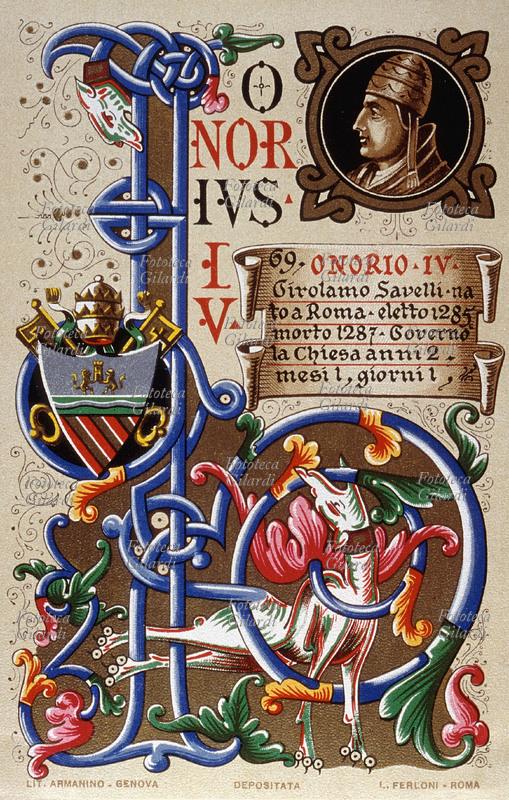 HO
NOR
IVS·
I
V·
69. ONORIO·IV·
Girolamo Savelli·na
to a Roma·eletto 1285
morto 1287·Governò
la Chiesa anni 2,
mesi 1, giorni 1,
LIT. ARMANINO - GENOVA
DEPOSITATA
L. FERLONI - ROMA
Fototeca
Gilardi